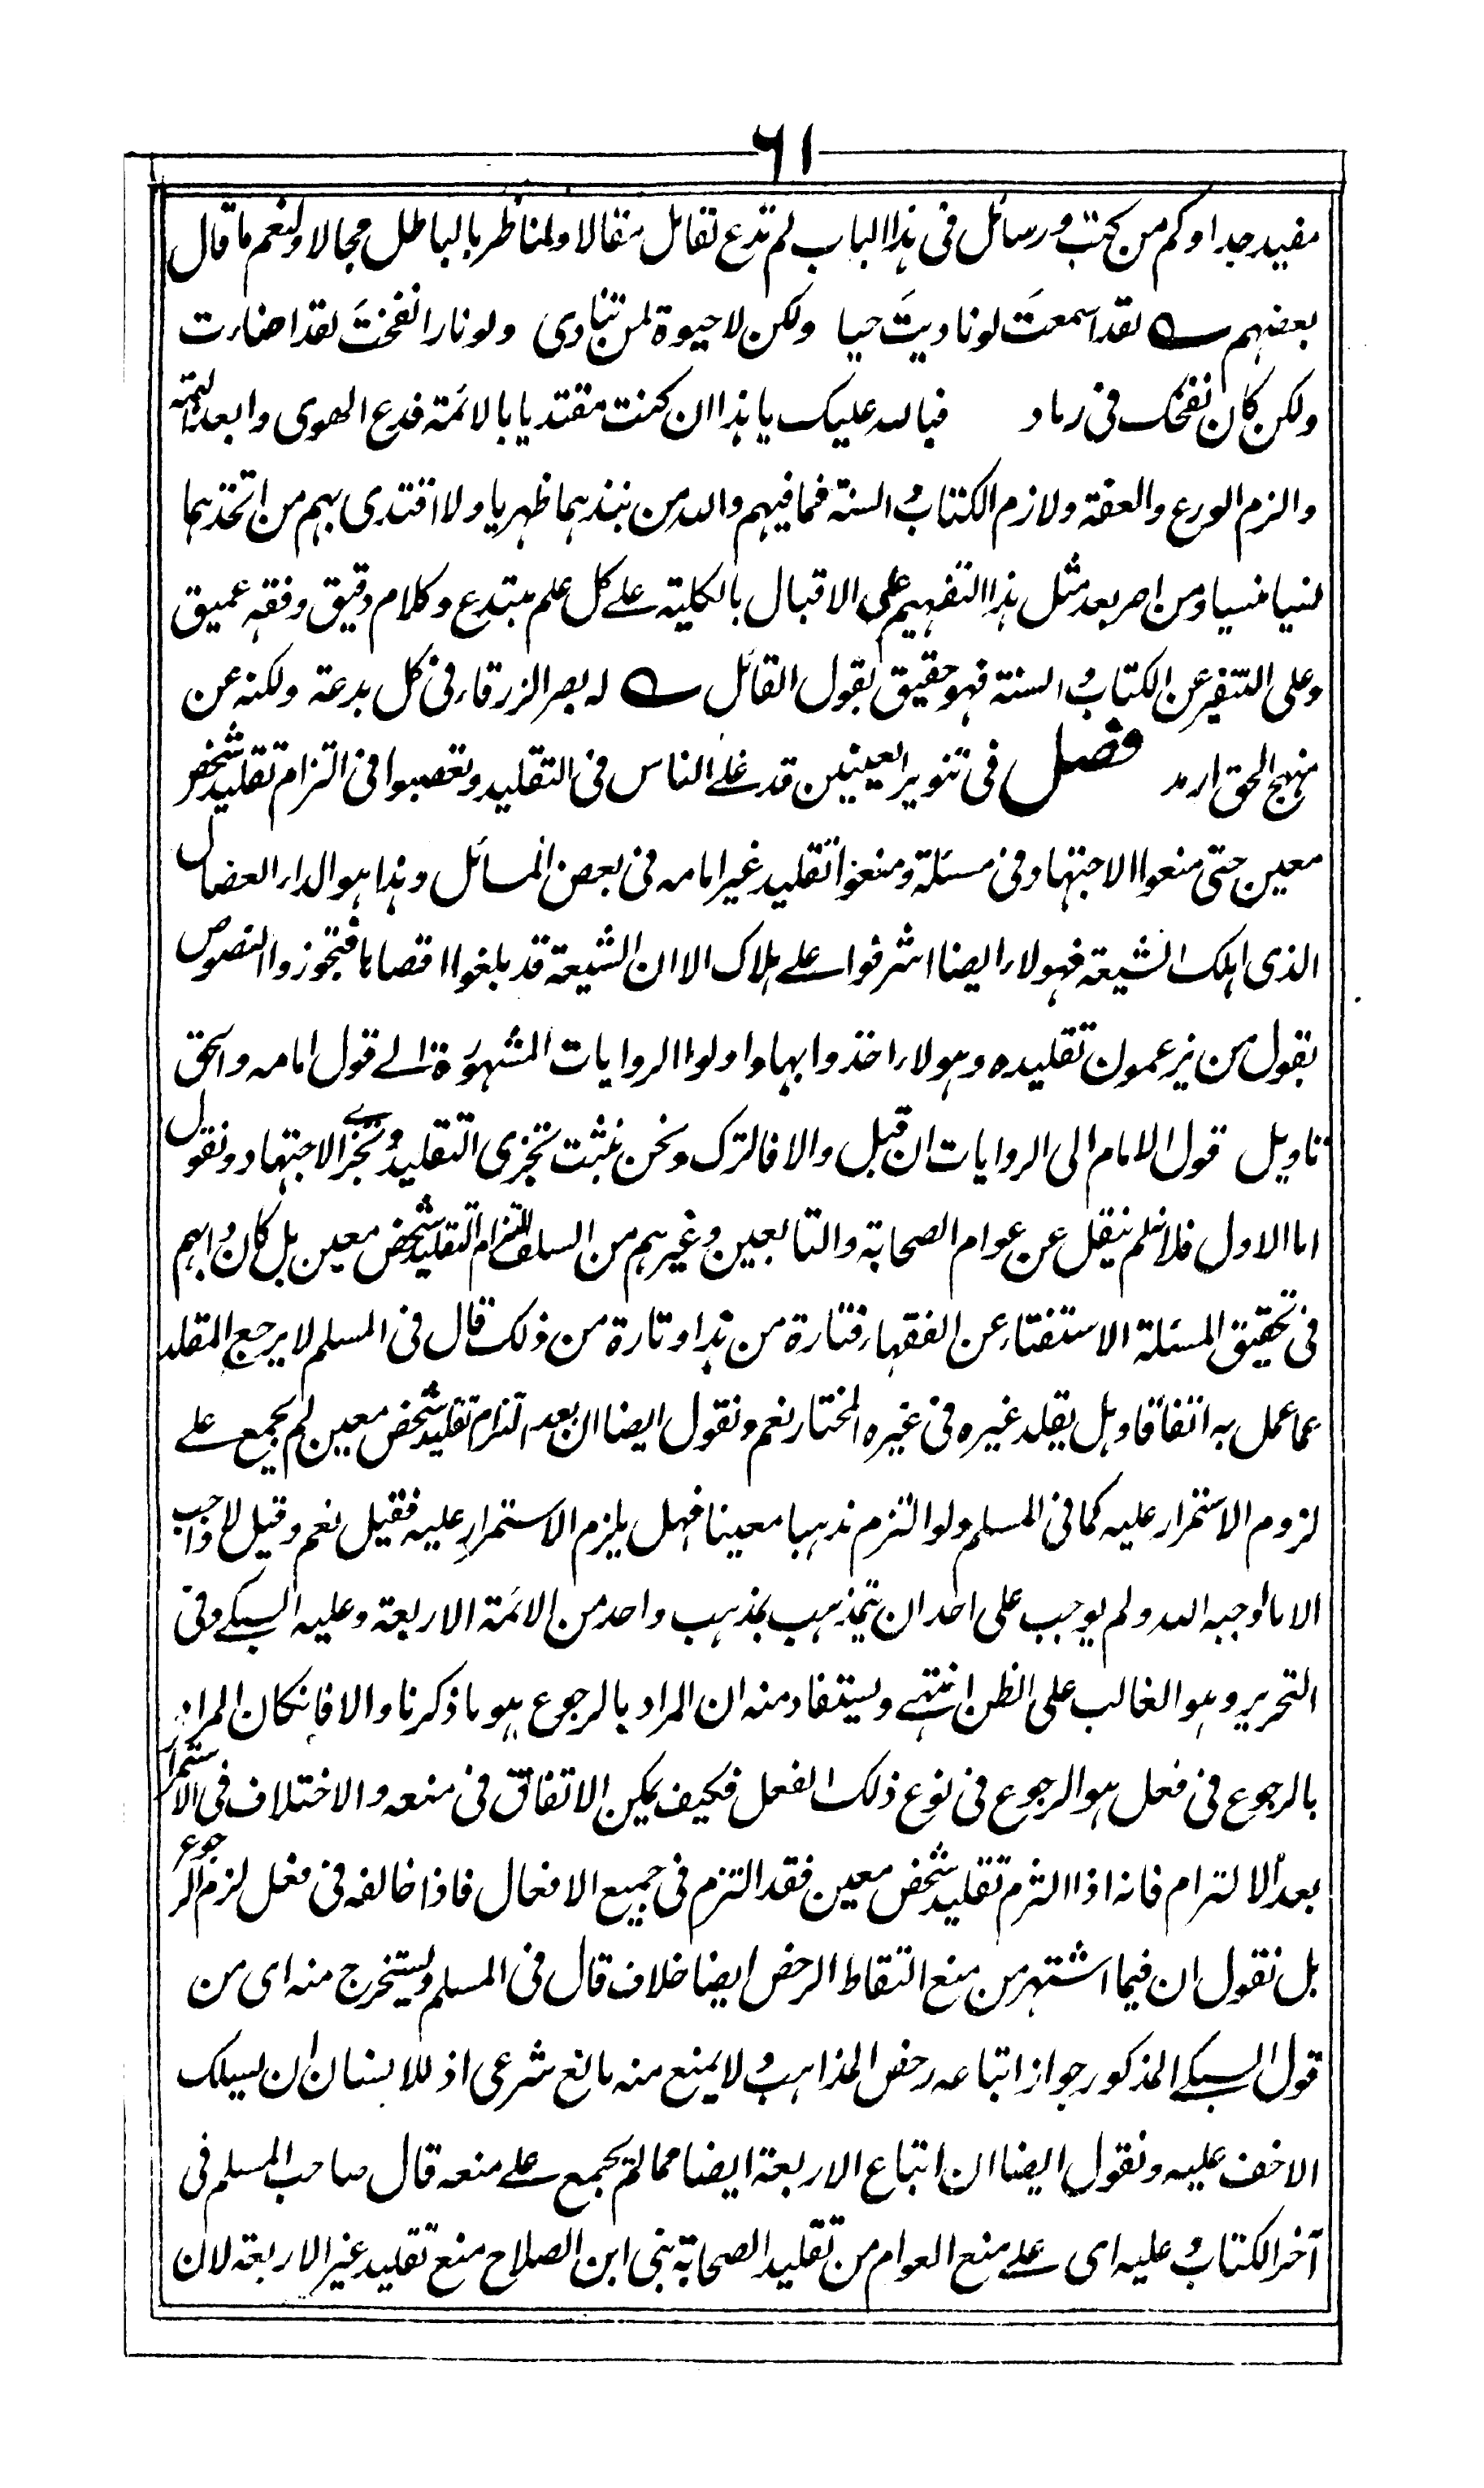 ٦١
مفید جدا وکم من کتب ورسائل فی ہذا الباب لم تدع لقائل مقالا ولمناظر بالباطل مجالا ولنعم ما قال
بعضہم ؎ لقد اسمعتَ لو نادیتَ حیا ولکن لا حیوة لمن تنادی ولو نارا نفختَ لقد اضاءت
ولکن کان نفخک فی رماد فباللہ علیک یا ہذا ان کنت مقتدیا بالائمة فدع الهوی وابعد التہمة
والزم الورع والعفة ولازم الکتاب والسنة فما فیہم واللہ من نبذہما ظہریا ولا اقتدی بہم من اتخذہما
نسیا منسیا ومن اصر بعد مثل ہذا التفہیم علی الاقبال بالکلیة علے کل علم مبتدع وکلام دقیق وفقہ عمیق
وعلی التنفیر عن الکتاب والسنة فہو حقیق بقول القائل ؎ لہ بصر الزرقاء فی کل بدعة ولکنہ عن
منہج الحق ارمد فصل فی تنویر العینین قد غلے الناس فی التقلید وتعصبوا فی التزام تقلید شخص
معین حتی منعوا الاجتہاد فی مسئلة ومنعوا تقلید غیر امامہ فی بعض المسائل وہذا ہو الداء العضال
الذی اہلک الشیعة فہولاء ایضا اشرفوا علے ہلاک الا ان الشیعة قد بلغوا اقصاہا فتجوزوا النصوص
بقول من یزعمون تقلیدہ وہولاء اخذوا بہا واولوا الروایات المشہورة الے قول امامہ والحق
تاویل قول الامام الی الروایات ان قبل والا فالترک ونحن نثبت تجزی التقلید وتجزے الاجتہاد ونقول
اما الاول فلانہ لم ینقل عن عوام الصحابة والتابعین وغیرہم من السلف التزام التقلید شخص معین بل کان دابہم
فی تحقیق المسئلة الاستفتاء عن الفقہاء فتارة من ہذا وتارة من ذلک قال فی المسلم لا یرجع المقلد
عما عمل بہ اتفاقا وہل یقلد غیرہ فی غیرہ المختار نعم ونقول ایضا ان بعد التزام تقلید شخص معین لم یجمع علے
لزوم الاستمرار علیہ کما فی المسلم ولو التزم مذہبا معینا فہل یلزم الاستمرار علیہ فقیل نعم وقیل لا واجب
الا ما اوجبہ اللہ ولم یوجب علی احد ان یتمذہب بمذہب واحد من الائمة الاربعة وعلیہ السبکے وفی
التحریر وہو الغالب علی الظن انتہے ویستفاد منہ ان المراد بالرجوع ہو ما ذکرنا والا فانکان المراد
بالرجوع فی فعل ہو الرجوع فی نوع ذلک الفعل فکیف یمکن الاتفاق فی منعہ والاختلاف فی الاستمرار
بعد الالتزام فانہ اذا التزم تقلید شخص معین فقد التزم فی جمیع الافعال فاذا خالفہ فی فعل لزم الرجوع
بل نقول ان فیما اشتہر من منع التقاط الرخص ایضا خلاف قال فی المسلم ویستخرج منہ ای من
قول السبکے المذکور جواز اتباعہ رخص المذاہب ولا یمنع منہ مانع شرعی اذ للانسان ان یسلک
الاخف علیہ ونقول ایضا ان اتباع الاربعة ایضا مما لم یجمع علے منعہ قال صاحب المسلم فی
آخر الکتاب وعلیہ ای علے منع العوام من تقلید الصحابة بنی ابن الصلاح منع تقلید غیر الاربعة لان